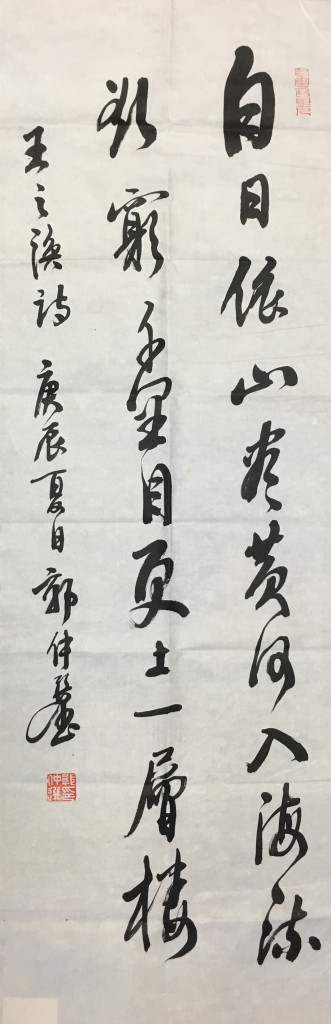 白日依山盡黄河入海流
欲窮千里目更上一層樓
王之渙詩 庚辰夏日 郭仲選